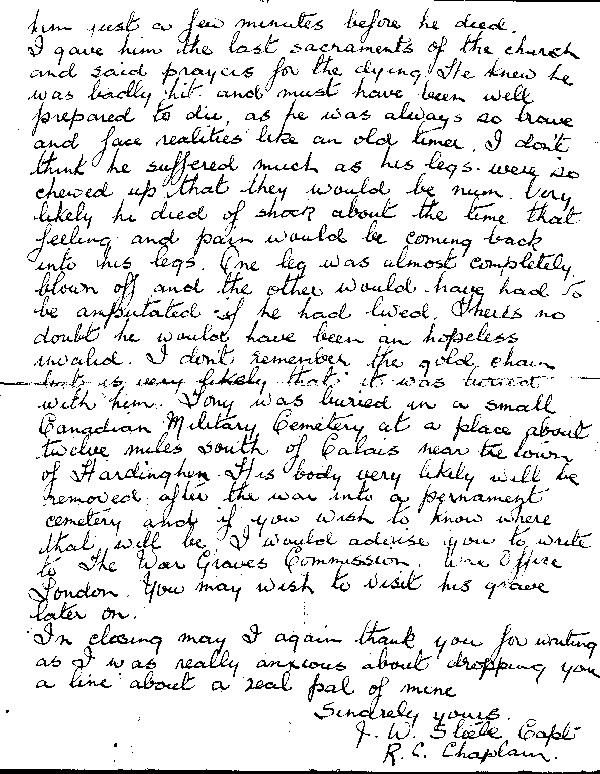 him just a few minutes before he died.
I gave him the last sacraments of the church
and said prayers for the dying. He knew he
was badly hit and must have been well
prepared to die, as he was always so brave
and face realities like an old timer. I don't
think he suffered much as his legs were so
chewed up that they would be num. Very
likely he died of shock about the time that
feeling and pain would be coming back
into his legs. One leg was almost completely
blown off and the other would have had to
be amputated if he had lived. There's no
doubt he would have been an hopeless
invalid. I don't remember the gold chain
but is very likely that it was buried
with him. Tony was buried in a small
Canadian Military Cemetery at a place about
twelve miles south of Calais near the town
of Hardinghen. His body very likely will be
removed after the war into a pernament
cemetery and if you wish to know where
that will be, I would advise you to write
to The War Graves Commission. War Office
London. You may wish to visit his grave
later on.
In closing may I again thank you for writing
as I was really anxious about dropping you
a line about a real pal of mine
Sincerely yours.
J. W. Capt
R. C. Chaplain.